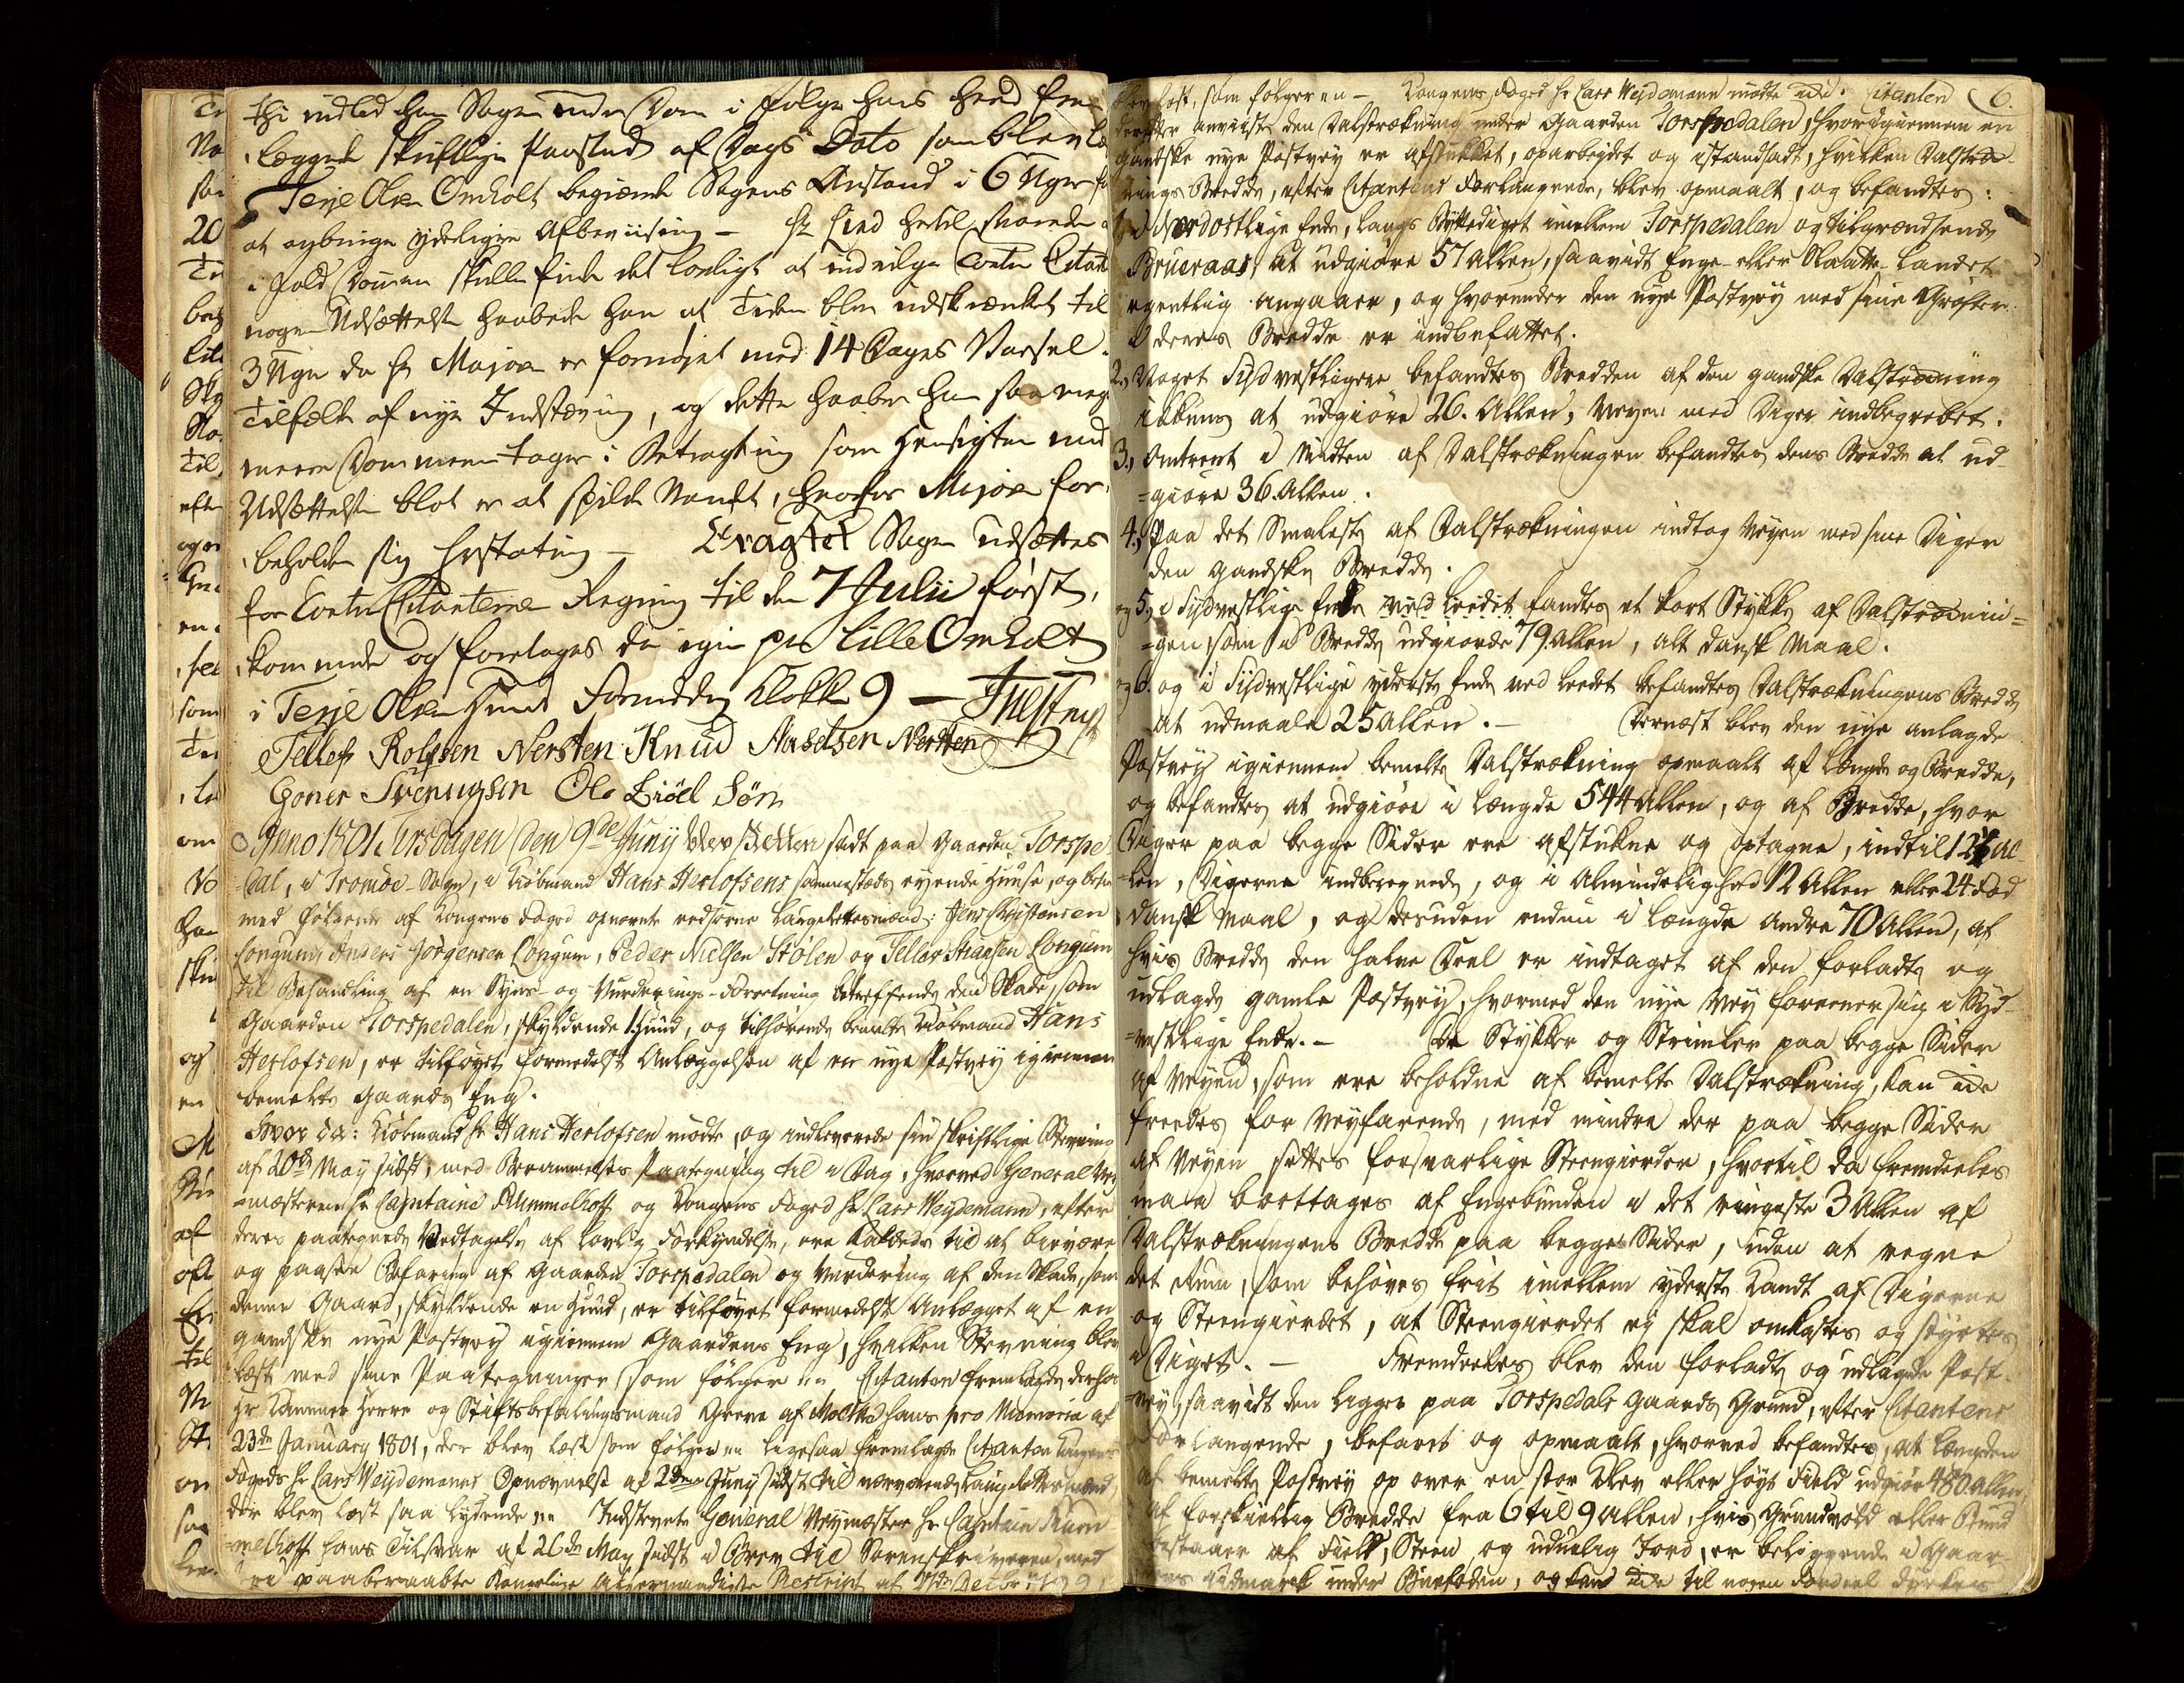 thi indlod han Sagen under Dom i følge hans herd frem
lægget skriftlige Paastand af Dags Dato som blev læ
Terje Olsen Omholt begiærede Sagens Anstand i 6 Uger for
at opbringe yderligere Afbeviisning – Hr Lind Heldt svarede
i fald Dommeren skulle finde det lovligt at indvilge Contra Citant
nogen Udsættelse haabede han at Tiden blev indskrænket til
3 Uger da Hr Majoren er fornøyet med 14 Dages Varsel
Tilfælde af nye Indstævning, og dette haaber han saa meget
meere Dommeren tager i Betragtning som Hensigten med
Udsættelsen blot er at spilde, hvorfor Majoren for
beholder sig Erstatning – Eragtet Sagen udsættes
for Contra Citanternes Regning til den 7 Julii først,
kommende og foretages da igien paa Lille Omholt
i Terje Olsens Huus Formiddag Klokken 9 –
Tellef Rolfsen Nersten Knud Aasetsen Nersten
Goner Svenugsen Ole Liødsøn
Anno 1801. Tirsdagen den 9de Juny blev Retten sadt paa Gaarden Torspe
dal, i Tromøe Sogn, i Kiøbmand Hans Herlofsens sammesteds eyende Huuse, og betient
med følgende af Kongens Foged opnævnte eedsorne Laugrettesmænd: Jens Christensen
Longum, Anders Jørgensen Longum, Peder Nielsen Stølen og Tellev Longum
til Behandling af en Syns- og Vurderings-Forretning betreffende den Skade, som
Gaarden Torspedalen, skyldende 1 Huud, og tilhørende bemelte Kiøbmand Hans
Herlofsen, er tilføyet formedelst Anlæggelsen af en nye Postvey igiennem
bemelte Gaards Eng.
Hvor da: Kiøbmand Hr Hans Herlofsen mødte, og indleverede sin skriftlige Stevning
af 20de May sidst, med Berammelses Paategning til i Dag, hvorved General Vey
=mæsteren Hr Capitaine Rummelhoff og Kongens Foged Hr Lars Weydemann, efter
deres paategnede Vedtagelse af lovlig Forkyndelse, ere kaldede til at bievære
og paasee Befaring af Gaarden Torspedalen og Vurdering af den Skade, som
denne Gaard, skyldende en Huud, er tilføyet formedelst Anlægget af en
gandske nye Postvey igiennem Gaardens Eng, hvilken Stevning blev
læst med sine Paategninger som følger Citanten fremlagde derhos
Hr Kammer Herre og Stiftsbefalingsmand Greve af Moltke hans pro Memoria af
23de January 1801, der blev læst som følger ligesaa fremlagde Citanten Kongens
Fogeds Hr Lars Weydemanns Opnævnelse af 2den Juny sidst til nærværende Laugrettesmænd
der blev læst saa lydende Indstevnte General Veymester Hr Capitain Rum
=melhoff hans Tilsvar af 26de May sidst i Brev til Sorenskriveren, med
paaberaabte Kongelige Allernaadigste Rescript af
6.
blev læst, som følger – Kongens Foged Hr Lars Weydemann mødte ikke. Citanten
derefter anviiste den Dalstrækning under Gaarden Torspedalen, hvorigiennem en
gandske nye Postvey er afstukket, oparbeydet og istandsadt, hvilken Dalstræk
nings Bredde, efter Citantens Forlangende, blev opmaalt, og befandtes:
1) i Nordostlige Ende, langs Byttediget imellem Torspedalen og tilgrændsende
Brueraas, at udgiøre 57 Allen, saavidt Enge- eller Slaatte-Landet
egentlig angaaer, og hvorunder den nye Postvey med sine Grøfter
i deres Bredde er indbefattet.
2) Noget Sydvestligere befandtes Bredden af den gandske Dalstrækning
ikkuns at udgiøre 26. Allen, Veyen med Diger indbegrebet.
3) Omtrent i Midten af Dalstrækningen befandtes dens Bredde at ud-
=giøre 36. Allen.
4) Paa det Smaleste af Dalstrækningen indtog Veyen med sine Diger
den gandske Bredde.
og 5) i Sydvestlige Ende ved Leedet fandtes et kort Stykke af Dalstræknin=
=gen som i Bredde udgiorde 79. Allen, alt dansk Maal.
og 6. og i Sydvestlige yderste Ende ved Leedet befandtes Dalstrækningens Bredde
at udmaale 25 Allen. – Dernæst blev den nye anlagde
Postvey igiennem bemelte Dalstrækning opmaalt af Længde og Bredde,
og befandtes at udgiøre i Længde 544 Allen, og af Bredde, hvor
Diger paa begge Sider ere afstukne og optagne, indtil 12½ Al
=len, Digerne indberegnede, og i Almindelighed 12 Allen eller 24 Fod
dansk Maal, og desuden endnu i Længde andre 70 Allen, af
hvis Bredde den halve Deel er indtaget af den forladte og
udlagde gamle Postvey, hvormed den nye Vey foreener sig i Syd-
=vestlige Ende. – De Stykker og Strimler paa begge Sider
af Veyen, som ere beholdne af bemelte Dalstrækning, kan ikke
fredes for Veyfarende, med mindre der paa begge Sider
af Veyen settes forsvarlige Steengierder, hvortil da fremdeeles
maa borttages af Engebunden i det ringeste 3 Allen af
Dalstrækningens Bredde paa begge Sider, uden at regne
det Rum, som behøves frit imellem yderste Kandt af Digerne
og Steengierdet, at Steengierdet ey skal omkastes og styrtes
i Diget. – Fremdeeles blev den forladte og udlagde Post-
=vey, saavidt den ligger paa Torspedals Gaards Grund, efter Citantens
Forlangende, befaret og opmaalt, hvorved befandtes, at Længden
af bemelte Postvey op over en stor Klev eller høyt Field udgiør 480 Allen,
af forskiellig Bredde fra 6 til 9 Allen, hvis Grundvold eller Bund
bestaaer af Field, Steen og uduelig Jord, er beliggende i Gaar-
dens Udmark under Bufoden, og kan ikke til nogen Fordeel dyrkes